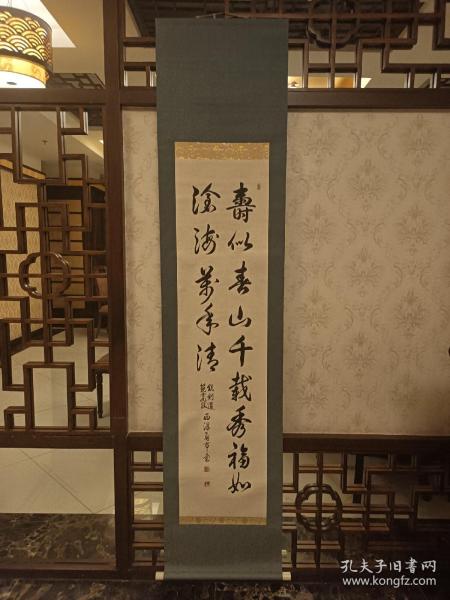 壽似春山千載秀福如
滄海萬年清
孔夫子旧书网
www.kongfz.com